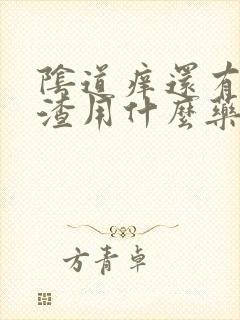 陰道痒還有
渣用什麼藥
方青卓